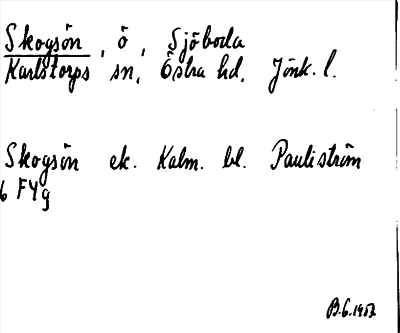 Skogsön, ö, Sjöboda
Karlstorps sn, Östra hd, Jönk. l.
Skogsön ek. Kalm. bl. Pauliström
6 F4g
B.G. 1957